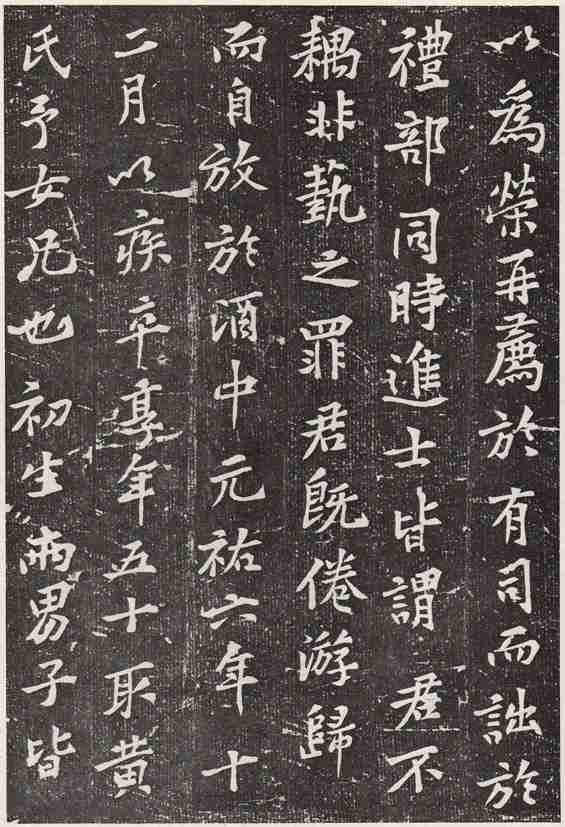 以爲榮再薦於有司而詘於
禮部同時進士皆謂君不
耦非藝之罪君既倦游歸
而自放於酒中元祐六年十
二月以疾卒享年五十取黃
氏予女兄也初生兩男子皆